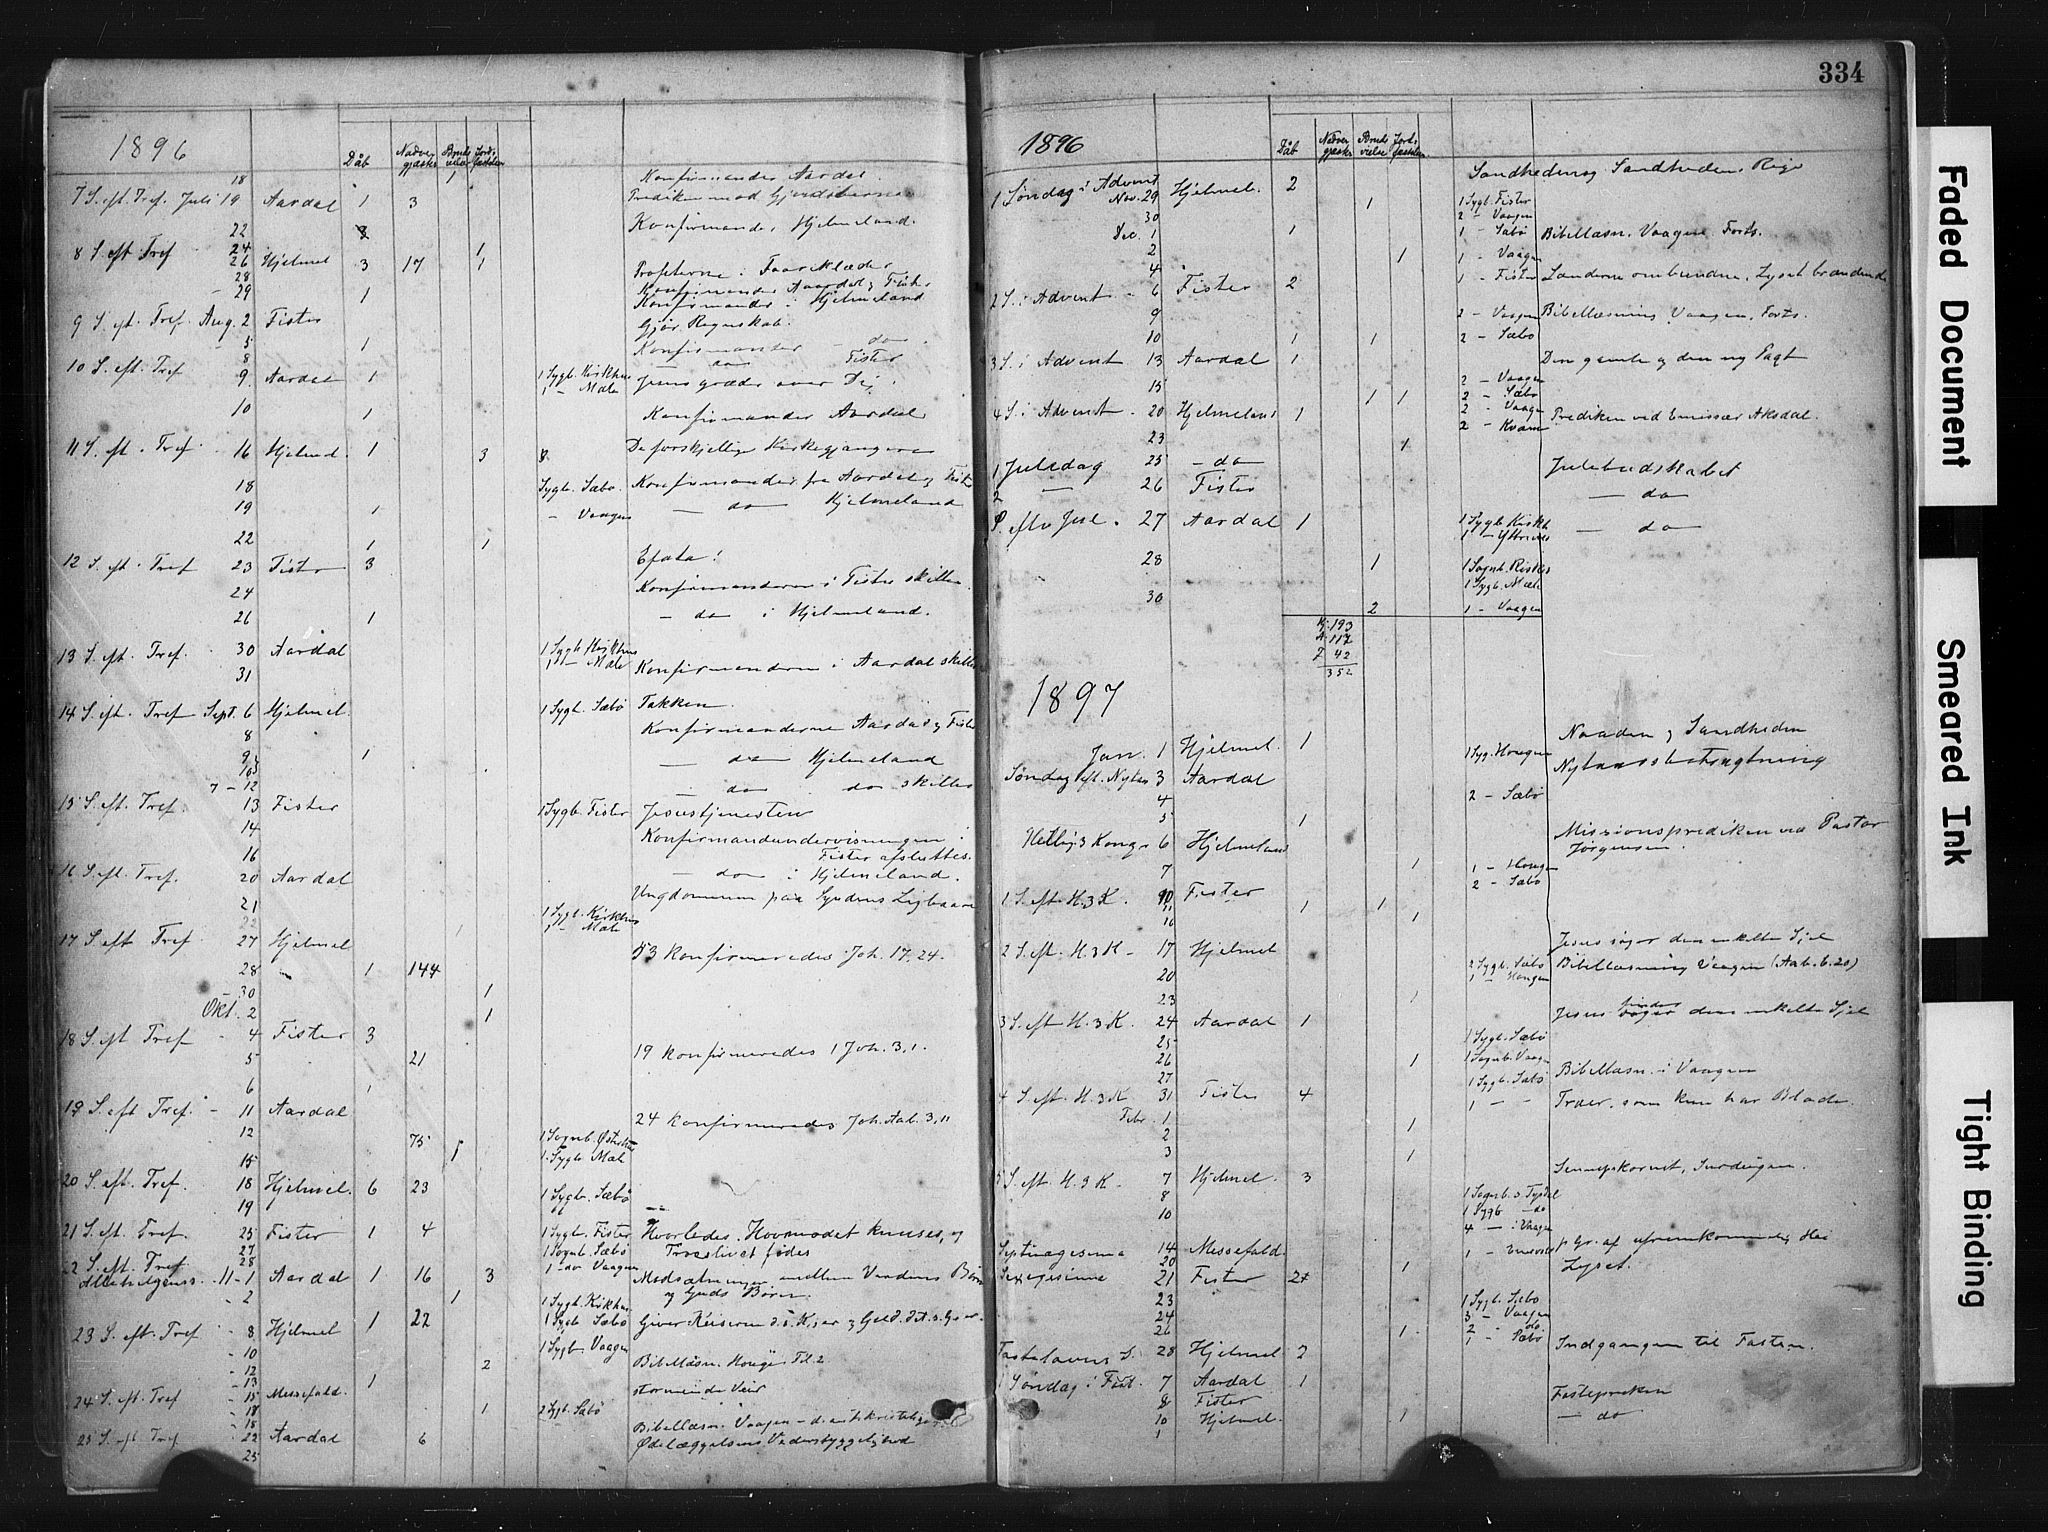 334
1896
Dåb Nadvergjæster Brudevielse Jordfæstelse
18 1 Konfirmander Aardal.
7 S. eft. Tref. Juli 19 Aardal 1 3
22 Konfirmander Hjelmeland.
8 S. eft Tref 24 1
26 Hjelmel 3 17 1 Profeterne i Faareklæder
28 Konfirmander Aardal & Fister
29 1 Konfirmander i Hjelmeland
9 S. eft. Tref. Aug. 2 Fister Gjør Regnskab.
5 1 Konfirmanter - do
8 - do Fister
10 S. eft. Tref 9 Aardal 1 1 Sygb. Kirkhus Jesus græder over Dig.
1 - Mæle
10 1 Konfirmander Aardal
11 S. eft. Tref. 16 Hjelmel. 1 3 8 De forskjellige Kirkegjængere
18 Sygb. Sæbø. Konfirmander fra Aardal & Fister
19 1 - Vaagen - do Hjelmeland
22 1 1
12 S. eft. Tref 23 Fister 3 Efata!
24 Konfirmanderne i Fister skilles
26 1 - do i Hjelmeland.
13 S. eft. Tref. 30 Aardal 1 Sygb. Kirkhus
31 1 - Mæle Konfirmanderne i Aardal skilles
14 S. eft. Tref Sept. 6 Hjelmel. 1 Sygb. Sæbø Takken.
8 Konfirmanderne Aardal & Fister
9 1 - do Hjelmeland
10
7 - 12 - do do skilles
15 S. eft. Tref. 13 Fister 1 Sygb. Fister Jesustjenesten
14 Konfirmandundervisningen i
16 Fister afsluttes.
16 S. eft. Tref. 20 Aardal - do i Hjelmeland.
21 Ungdommen paa Syndens Ligbaare
22 1 Sygb. Kirkhus
1 - Mæle
17 S. eft Tref 27 Hjelmel 53 konfirmeredes Joh. 17,24.
28 1 144
30 1
Okt. 2 1
18 S. eft Tref 4 Fister 3
5 21 19 konfirmeredes 1 Joh. 3,1.
6 1
19 S. eft Tref. 11 Aardal
12 75 24 konfirmeredes Joh. Aab. 3,11
15 1 1 Sygb. Mæle
20 S. eft. Tref. 18 Hjelmel. 6 23 1 Sygb. Sæbø
19
21 S. eft. Tref. 25 Fister 1 4 1 Sygb. Fister Hvorledes Hovmodet knuses, og
27 1 Sognb. Sæbø Troeslivet fødes
22 S. eft. Tref 28 1 do Vaagen
Allehelgenss. 11 - 1 Aardal 1 16 3 Modsætningen mellem Verdens Børn
- 2 1 og Guds Børn.
1 Sygb. Kirkhus
23 S. eft. Tref - 8 Hjelmel 1 22 1 Sygb Sæbø Giver Keiseren d. s. K. er & Gud. det s. G. er.
- 10 1 Sygb. Vaagen Bibellæsn. Houge Til. 2
- 12 2
- 13 1
24 S. eft. Tref - 15 Messefald. stormende Veir
- 18 1 2 Sygb. Sæbø
- 18 Bibellæsn. Vaagen
25 S. eft Tref - 22 Aardal 6 Ødelæggelsens Vederstyggelighed
25
1896
Dåb Nadvergjæster Brudevielse Jordfæstelse.
1 Søndag i Advent Nov. 29 Hjelmel. 2 Sandheden og Sandhedens Rige
30 1 1 Sygb. Fister
2 - Vaagen
Dec. 1 1 1 - Sæbø Bibellæsn. Vaagen Forts.
2 1 1 - Vaagen
4 1 - Fister Lænderne ombundne, Lyset brændende
2 S. i Advent - 6 Fister 2
9 2 - Vaagen Bibellæsning Vaagen, Forts.
10 1 1 2 - Sæbø
3 S. i Advent 13 Aardal 1 Den gamle og den ny Pagt
15 1 1 2 - Vaagen
2 - Sæbø
4 S. i Advent - 20 Hjelmeland 1 2 - Vaagen Prediken ved Emissær Aksdal.
23 1 2 - Kvam
1 Juledag 25 - do Julebudskabet
2 - 26 Fister - do
S. eftr Jul. 27 Aardal 1 1 Sygb Kirkh - do
28 1
1 Sygb. Mæle
30 2 1 - Vaagen
H. 193
A. 117
F 42
352
1897
Jan. 1 Hjelmel. 1 Naaden & Sandheden
Søndag eft. Nytar 3 Aardal 1 Syg. Hougen Nytaarsbetragtning
4 2 - Sæbø
5 1
Hellig 3 Kong. 6 Hjelmeland Missionsprediken ved Pastor
Jørgensen.
7 1 1 - Hougen
2 - Sæbø
1 S. eft H. 3 K. 10 Fister
11 1 1
16 1
2 S. eft. H. 3 K - 17 Hjelmel Jesus søger den enkelte Sjel
20 2 Sygb. Sæbø Bibellæsning Vaagen (Aab. 6.20)
1 - Hougen
23 1
3 S. eft H. 3 K. 24 Aardal 1 Jesus finder den enkelte Sjel
25 1 Sygb. Sæbø
26 1 1 Sognb. Vaagen
27 1 Sygb. Sæbø Bibellæsn. i Vaagen
4 S. eft. H. 3 K 31 Fister 4 1 - - Træer, som kun har Blade.
Febr. 1
2 1
3 1
5 S. eft. H. 3 K - 7 Hjelmel. 3 Sennepskornet, Surdeigen.
8
10 1 Sygb - do
4 - i Vaagen
Septuagesima 14 Messefald p. Gr. af
20 1
Sexagesima 21 Fister 2 Lyset.
23 1 Sygb. Sæbø
24 3 - Vaagen
26 1 2 do
1 - Sæbø
Fastelavens S. 28 Hjelmel 2 Indgangen til Fasten.
1 Søndag i Fast. 7 Aardal 1
8 Fister Fastepreken
10 Hjelmel. 1 - do
1
Faded Document
Smeared Ink
Tight Binding